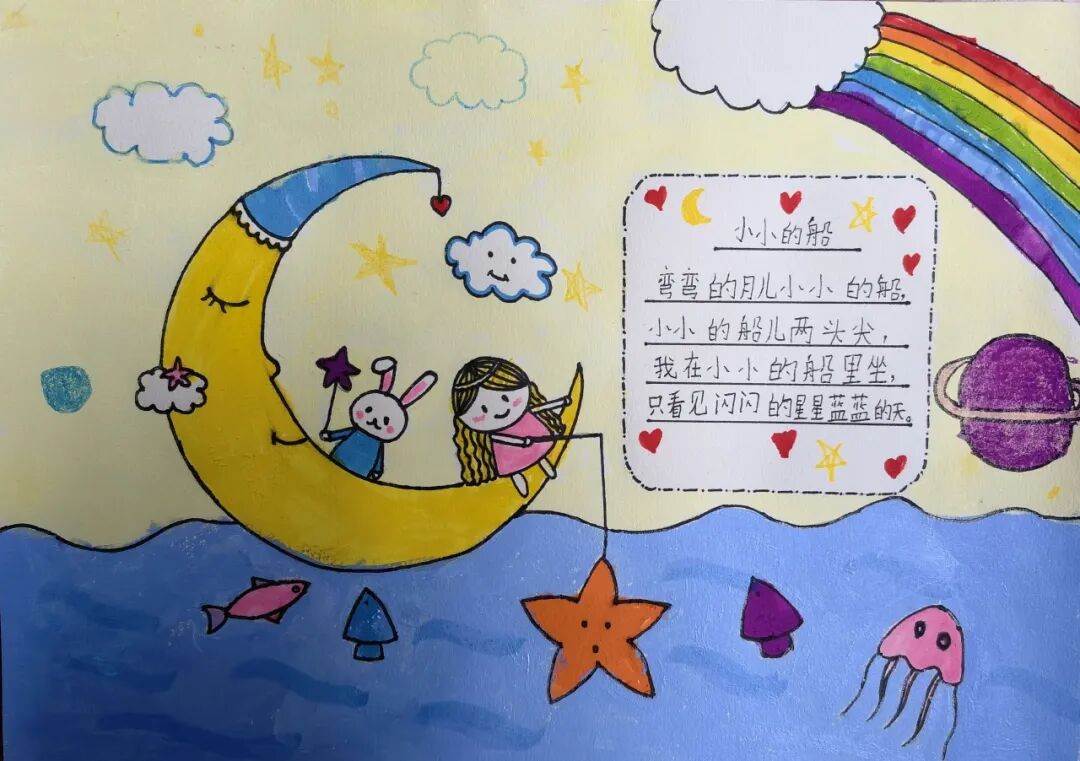 小小的船
弯弯的月儿小小的船,
小小的船儿两头尖,
我在小小的船里坐,
只看见闪闪的星星蓝蓝的天。